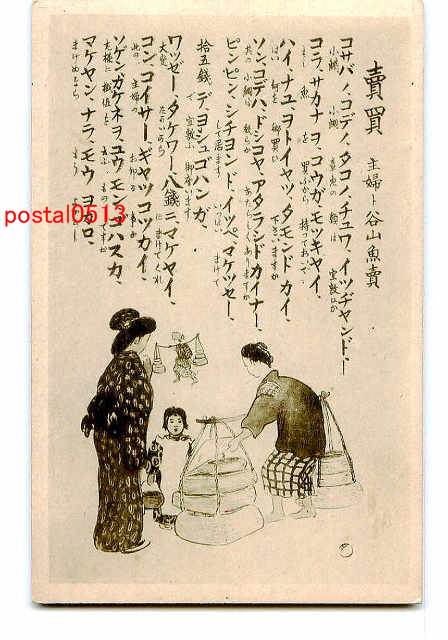 賣買
主婦ト谷山魚賣
コサバノ、コデノ、タコノ、チュワ、イツヂャンド、
小鯖 小鯛 章魚の類は 宜敷ひか
コラ、サカナヲ、コウガ、モッキャイ、
もし 魚を 買ふから 持っておいで
ハイ、ナユヲトイヤッ、タモンドカイ、
はい 何を御買ひ 下さいますか
ソン、コデハ、ドシコヤ、アタラシドカイナー、
其の 小鯛は 幾らか あたらしくありますか
ピンピン、シチヨンド、イッペ、マケッセー、
して居ます いっぱい まけて
拾五錢デ、ヨシュゴハンガ、
で 宜敷ふ 御座います
ワッゼー、タケワー、八錢ニマケヤイ、
大変 たかいから にまけてくれ
コン、コイサー、ギャッコッカイ、
此の 主婦の
ソゲン、ガケネヲ、ユウモンヂゴハスカ、
左様に 掛値を 云ふ ものですか
マケヤン、ナラ、モウ、ヨゴロ、
まけぬなら もう
postal0513